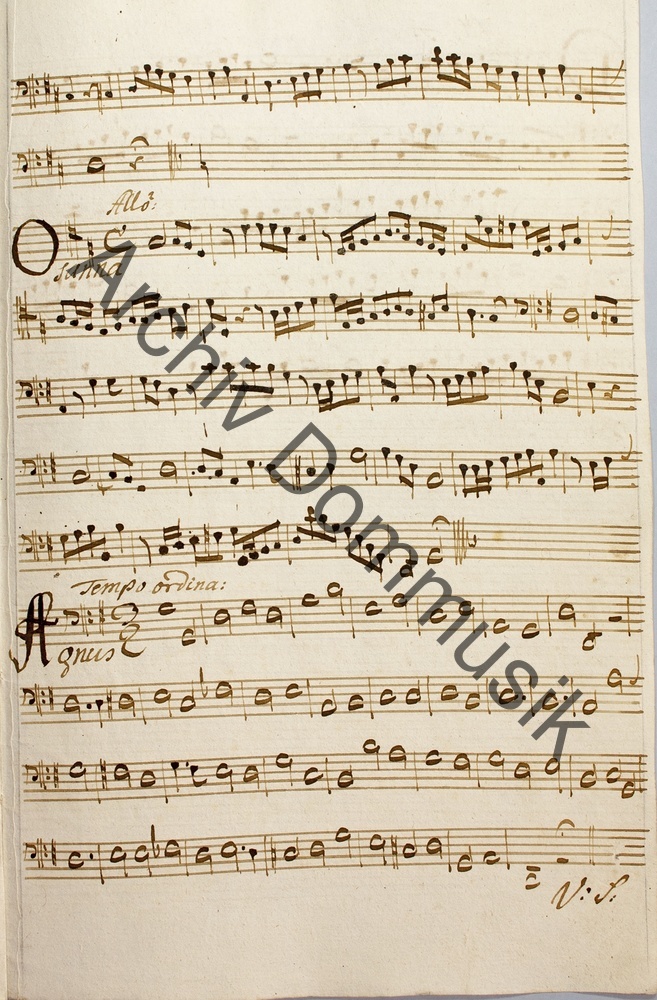 Allo:
Osanna
Tempo ordina:
Agnus
V: S.
Archiv Dommusik